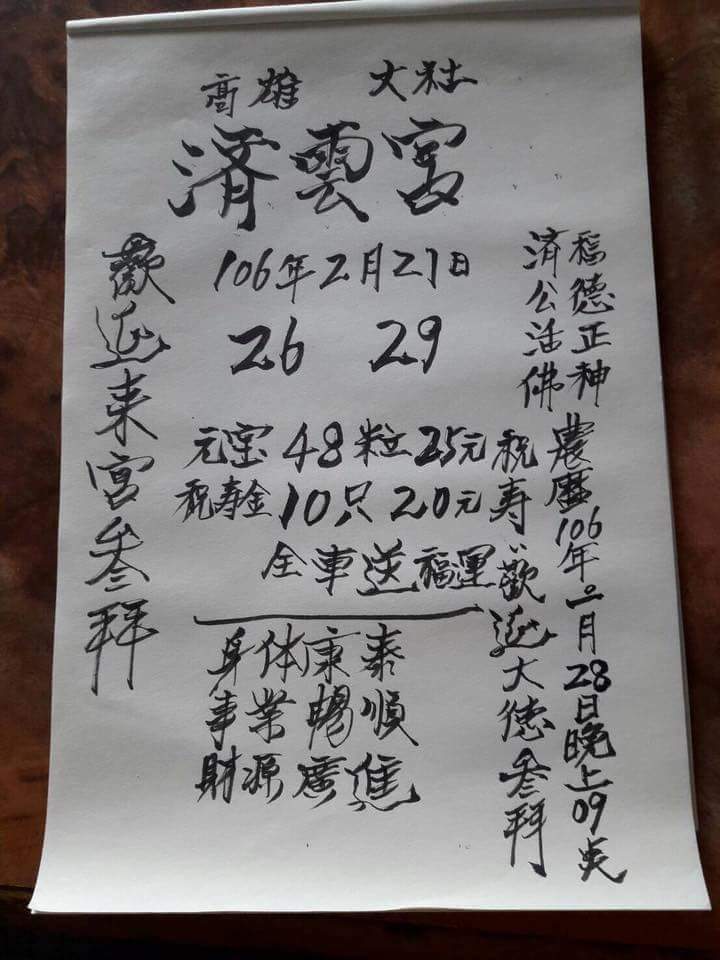 高雄 大社
済雲宮
106年2月27日
26 29
元宝 48粒 25元
祝寿金 10只 20元
全車送福運
身体康泰
事業暢順
財源廣進
福德正神 農歷106年二月28日晚上09点
済公活佛 祝寿歡迎大德叁拜
歡迎来宮叁拜